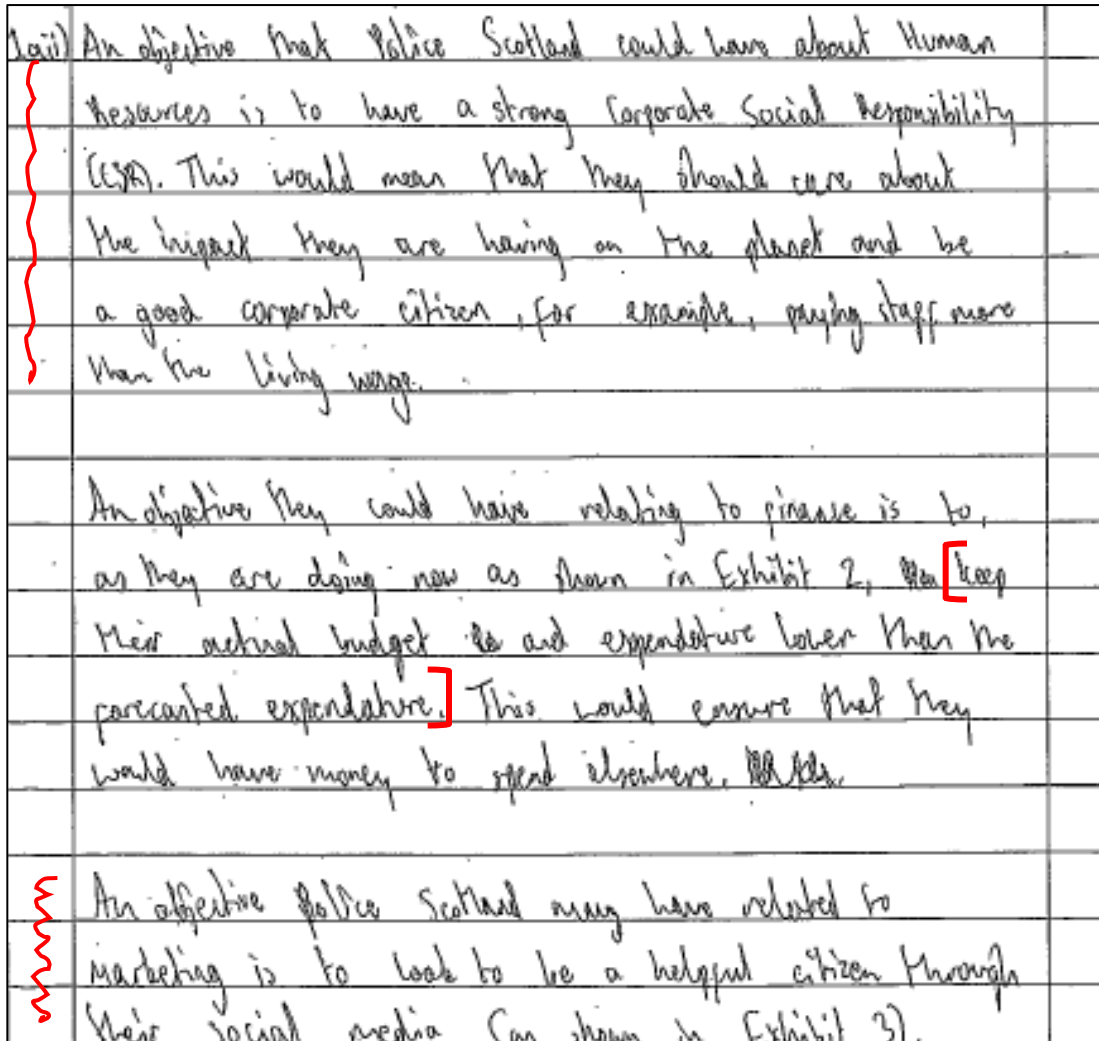 1aii) An objective that Police Scotland could have about Human
Resources is to have a strong Corporate Social Responsibility
(CSR). This would mean that they should care about
the impact they are having on the planet and be
a good corporate citizen, for example, paying staff more
than the living wage.
An objective they could have relating to finance is to,
as they are doing now as shown in Exhibit 2, keep
their actual budget and expenditure lower than the
forecasted expendature. This would ensure that they
would have money to spend elsewhere.
An objective Police Scotland may have related to
marketing is to look to be a helpful citizen through
their social media (as shown in Exhibit 3).